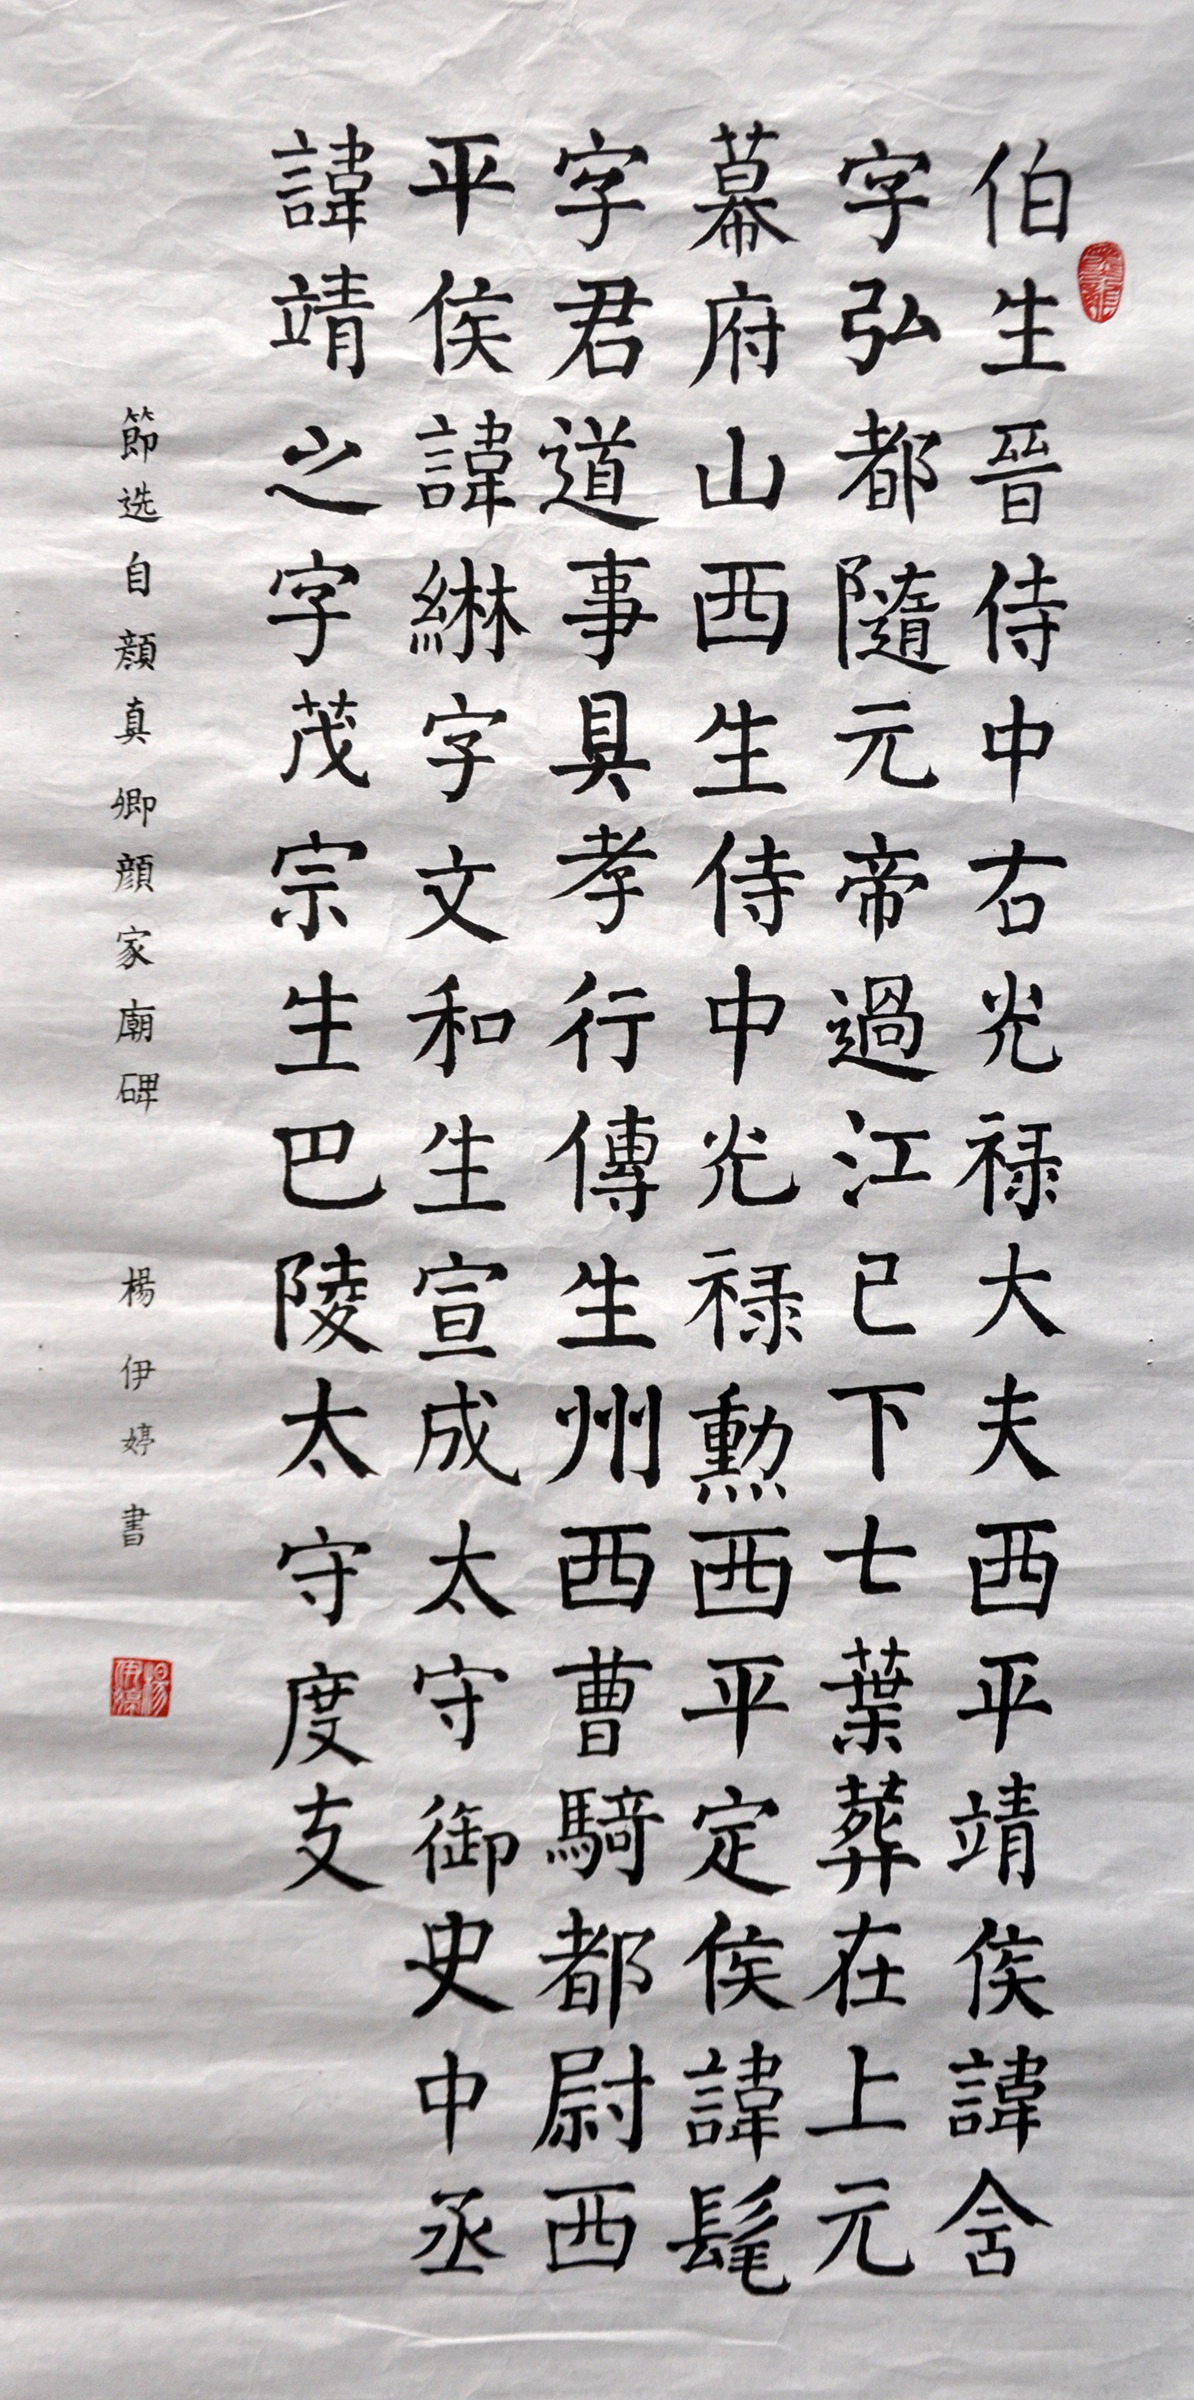 伯生晉侍中右光禄大夫西平靖侯諱含
字弘都隨元帝過江已下七葉葬在上元
幕府山西生侍中光禄勲西平定侯諱髦
字君道事具孝行傳生州西曹騎都尉西
平侯諱綝字文和生宣成太守御史中丞
諱靖之字茂宗生巴陵太守度支
節选自顔真卿顔家廟碑
楊伊婷書